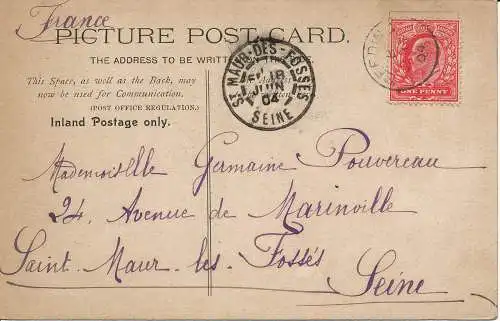 France
PICTURE POST CARD.
THE ADDRESS TO BE WRIT
This Space, as well as the Back, may
now be used for Communication.
(POST OFFICE REGULATION.)
Inland Postage only.
ST MAUR-DES-FOSSÉS
18
JUIN
04
SEINE
ONE PENNY
Mademoiselle Germaine Pouvereau
24, Avenue de Marinville
Saint-Maur-les-Fossés
Seine